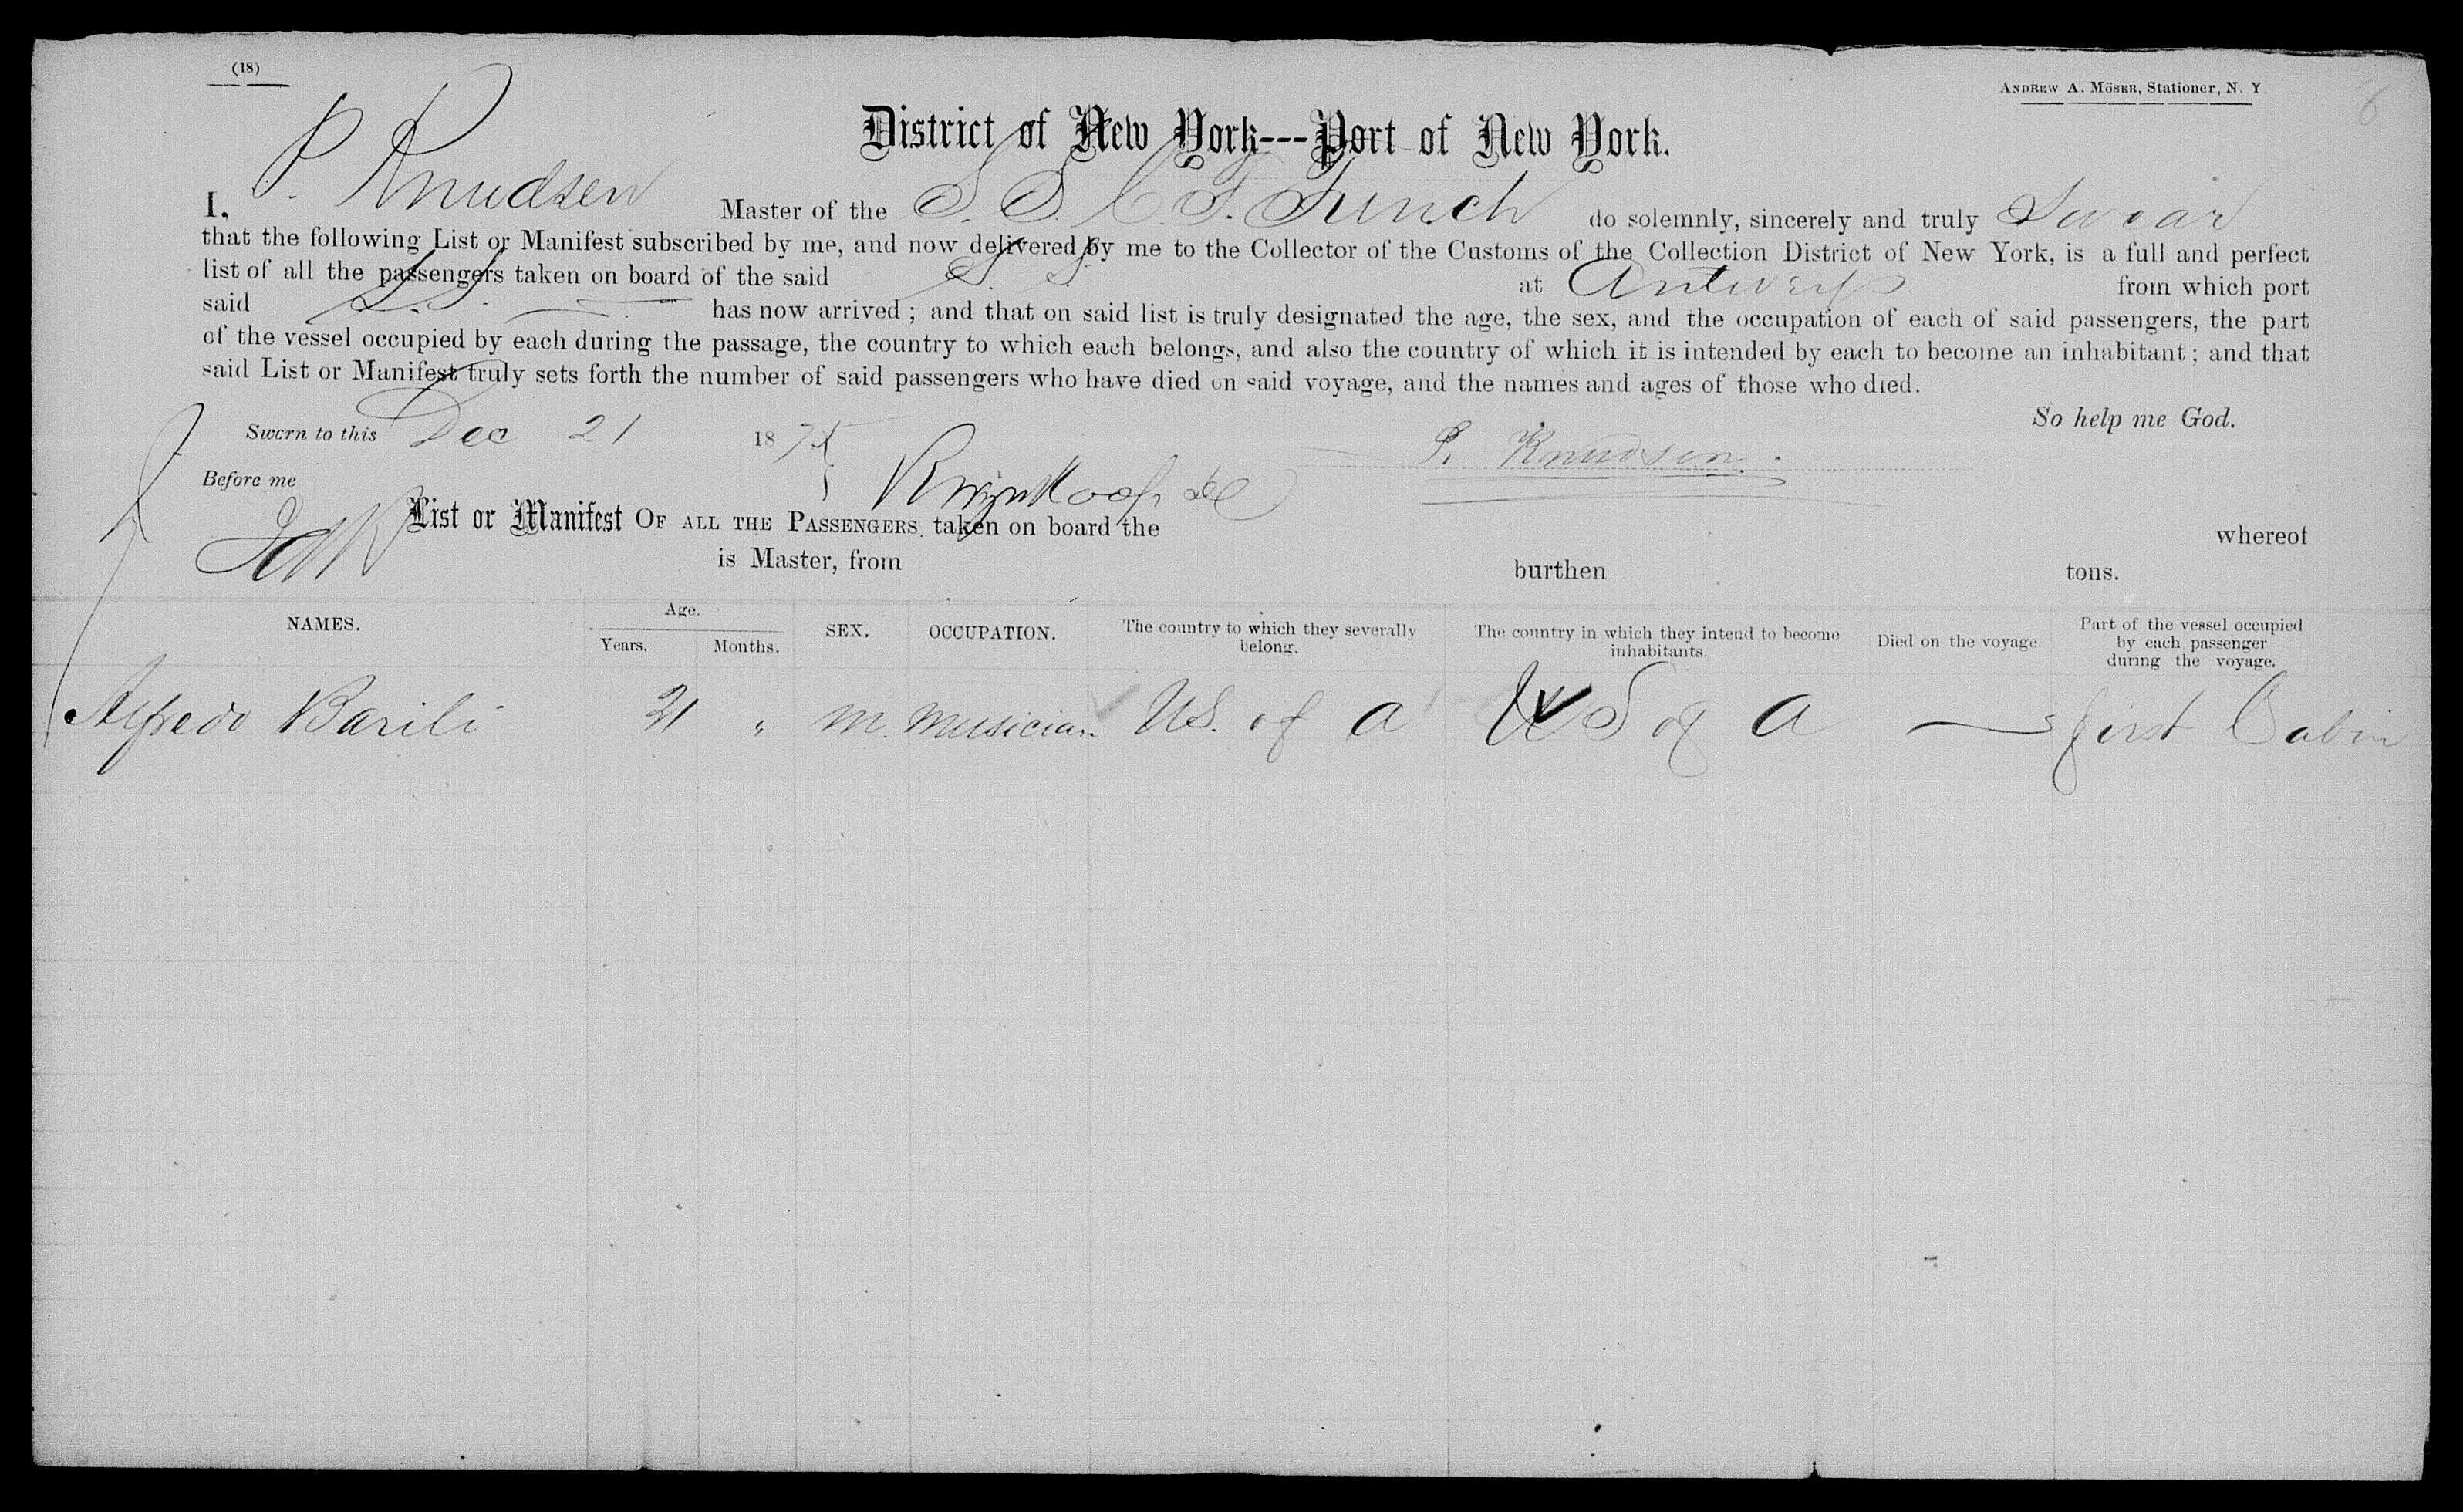 (18)
ANDREW A. MÖSER, Stationer, N. Y
8
District of New York---Port of New York.
I, P. Knudsen Master of the S. S. C. F. Funch do solemnly, sincerely and truly Swear
that the following List or Manifest subscribed by me, and now delivered by me to the Collector of the Customs of the Collection District of New York, is a full and perfect
list of all the passengers taken on board of the said S. S. at Antwerp from which port
said S.S. has now arrived; and that on said list is truly designated the age, the sex, and the occupation of each of said passengers, the part
of the vessel occupied by each during the passage, the country to which each belongs, and also the country of which it is intended by each to become an inhabitant; and that
said List or Manifest truly sets forth the number of said passengers who have died on said voyage, and the names and ages of those who died.
So help me God.
Sworn to this Dec 21 1875
P. Knudsen.
Before me
List or Manifest OF ALL THE PASSENGERS taken on board the whereof
is Master, from burthen tons.
NAMES. Age. Years. Months. SEX. OCCUPATION. The country to which they severally belong. The country in which they intend to become inhabitants. Died on the voyage. Part of the vessel occupied by each passenger during the voyage.
Alfredo Barili 21 " m. Musician US. of A US of A — first Cabin